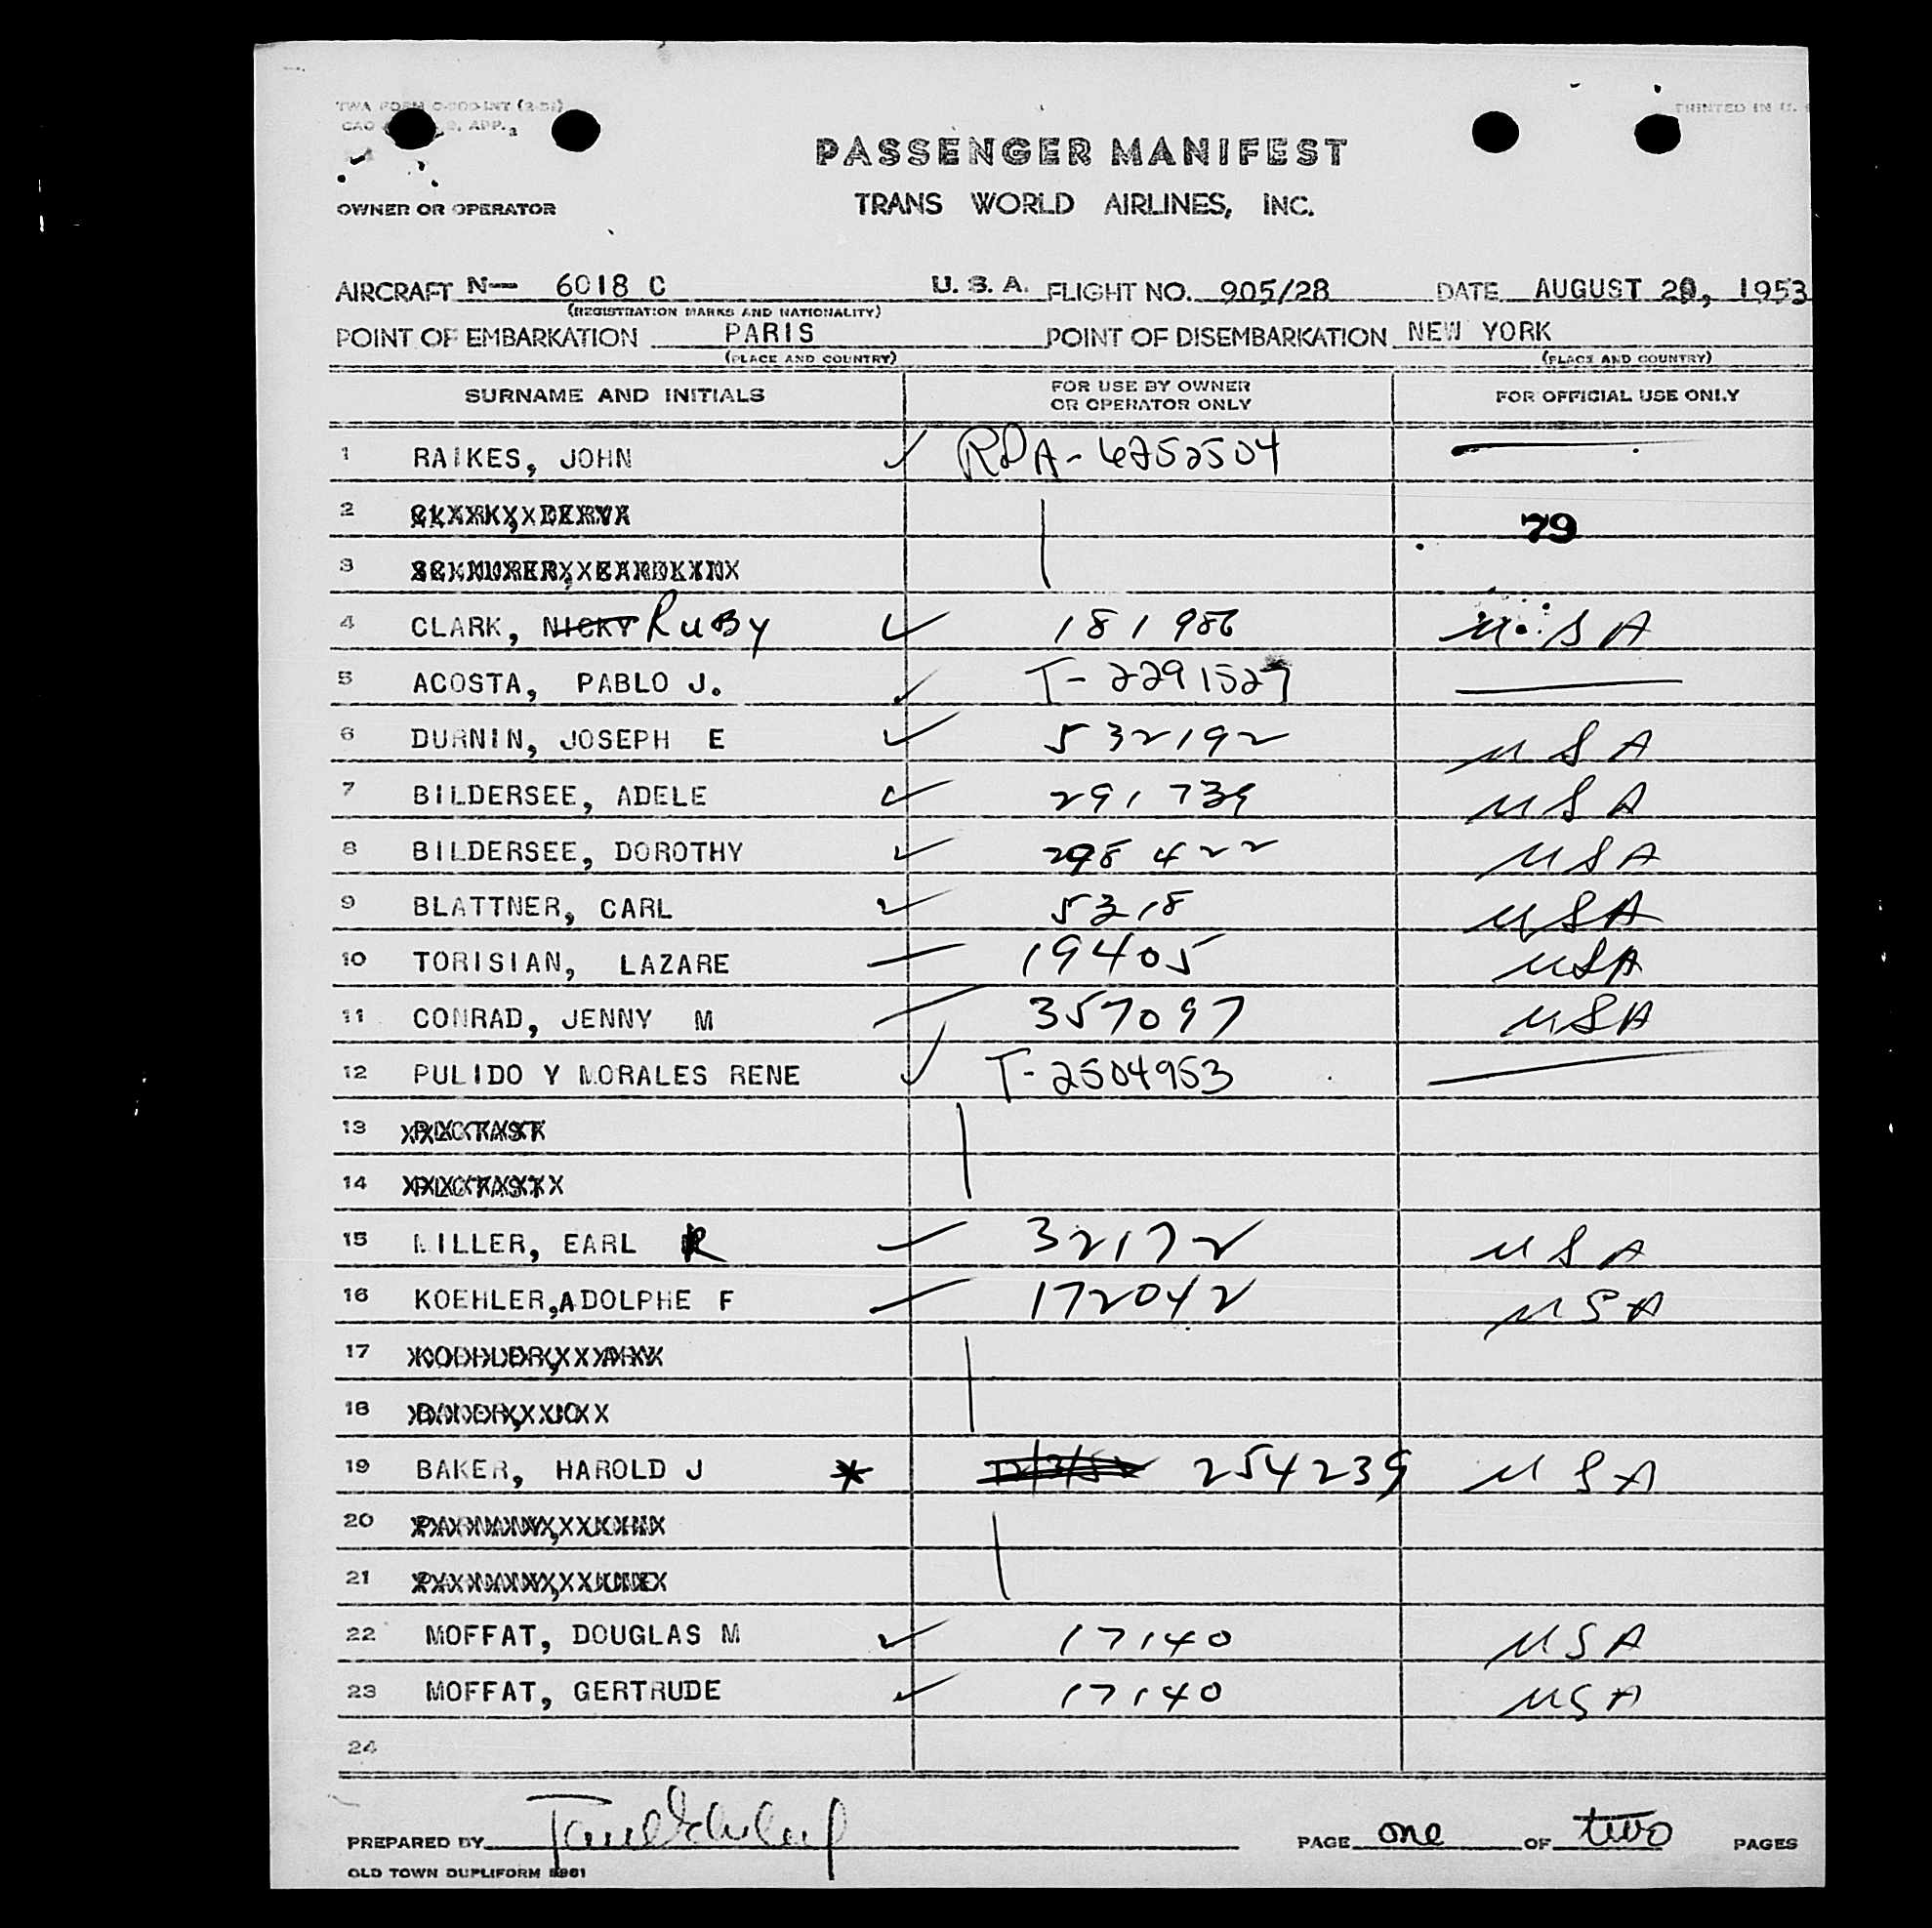 TWA FORM
CAO APP.
PRINTED IN U.
PASSENGER MANIFEST
TRANS WORLD AIRLINES, INC.
OWNER OR OPERATOR
AIRCRAFT N— 6018 C U. S. A. FLIGHT NO. 905/28 DATE AUGUST 20, 1953
(REGISTRATION MARKS AND NATIONALITY)
POINT OF EMBARKATION PARIS POINT OF DISEMBARKATION NEW YORK
(PLACE AND COUNTRY) (PLACE AND COUNTRY)
SURNAME AND INITIALS FOR USE BY OWNER OR OPERATOR ONLY FOR OFFICIAL USE ONLY
1 RAIKES, JOHN RDA-6252504
2 79
3
4 CLARK, NICKY RUBY 181986 USA
5 ACOSTA, PABLO J. T-2291527
6 DURNIN, JOSEPH E 532192 USA
7 BILDERSEE, ADELE 291739 USA
8 BILDERSEE, DOROTHY 298422 USA
9 BLATTNER, CARL 5318 USA
10 TORISIAN, LAZARE 19405 USA
11 CONRAD, JENNY M 357097 USA
12 PULIDO Y MORALES RENE T-2504953
13
14
15 MILLER, EARL R 32172 USA
16 KOEHLER, ADOLPHE F 172042 USA
17
18
19 BAKER, HAROLD J * 254239 USA
20
21
22 MOFFAT, DOUGLAS M 17140 USA
23 MOFFAT, GERTRUDE 17140 USA
24
PREPARED BY PAGE one OF two PAGES
OLD TOWN DUPLIFORM